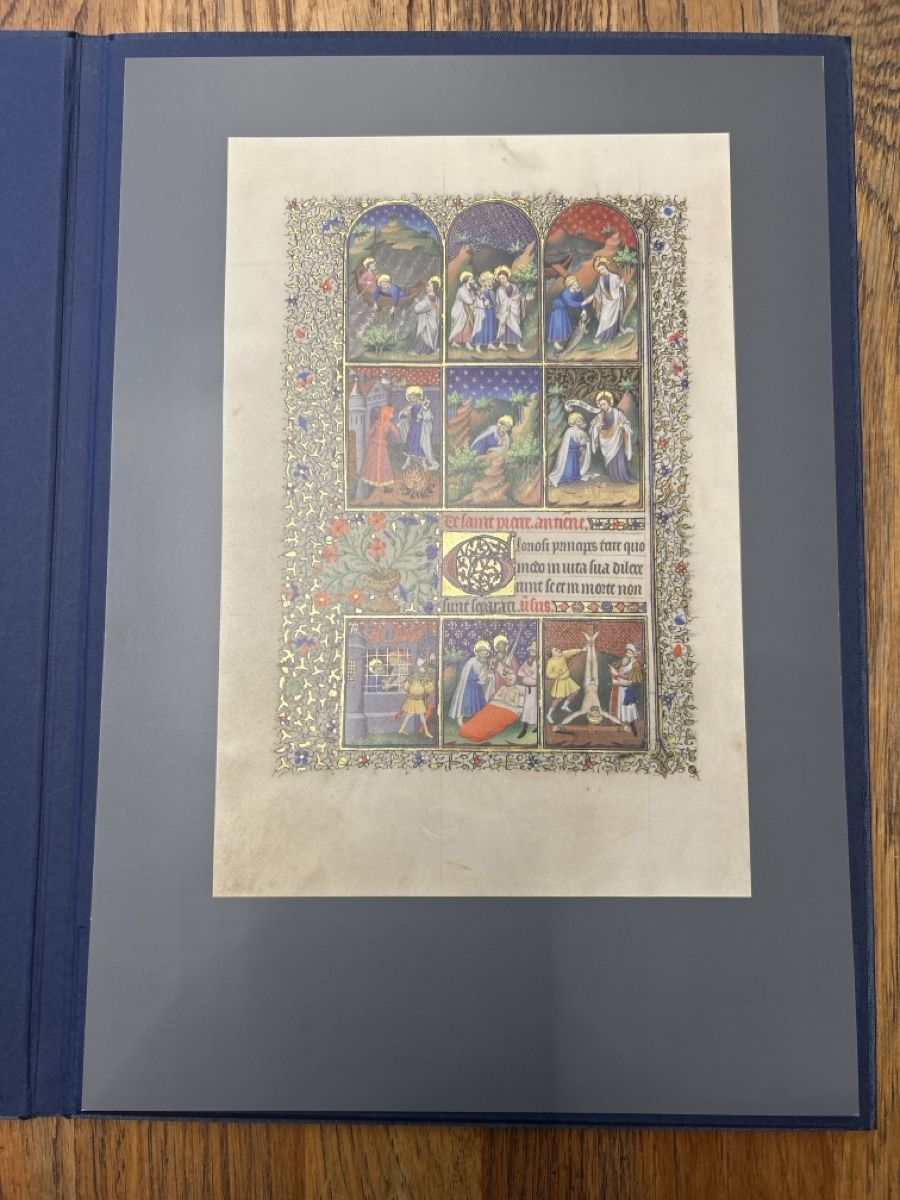 De saint pierre. antiẽne.
Gloriosi principes terre quo
modo in uita sua dilexe
runt se et in morte non
sunt separati. ũsus.